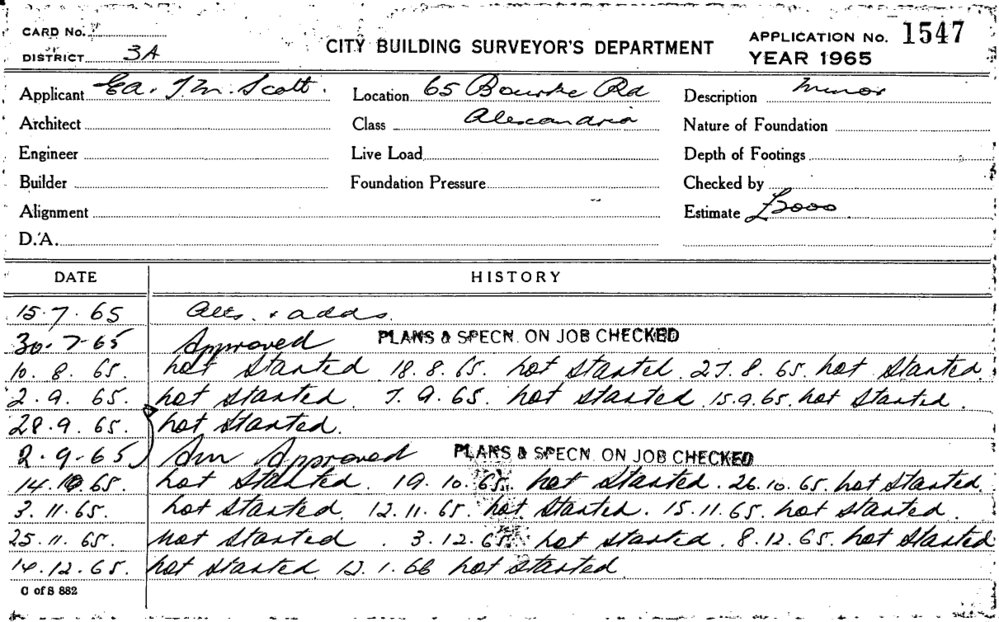 CARD No.
DISTRICT 3A
CITY BUILDING SURVEYOR'S DEPARTMENT
APPLICATION No. 1547
YEAR 1965
Applicant Ea. T. M. Scott.
Location 65 Bourke Rd
Description Minor
Architect
Class Alexandria
Nature of Foundation
Engineer
Live Load
Depth of Footings
Builder
Foundation Pressure
Checked by
Alignment
Estimate £3000
D.A.
DATE HISTORY
15.7.65 Alts. & adds.
30.7.65 Approved PLANS & SPECN. ON JOB CHECKED
10.8.65. not Started 18.8.65. not Started. 27.8.65. not Started.
2.9.65. not Started. 7.9.65. not Started. 15.9.65. not Started.
28.9.65. not Started.
2.9.65 Am Approved PLANS & SPECN. ON JOB CHECKED
14.10.65. not Started. 19.10.65. not Started. 26.10.65. not Started.
3.11.65. not Started. 12.11.65. not Started. 15.11.65. not Started.
25.11.65. not Started. 3.12.65. not Started. 8.12.65. not Started
14.12.65. not Started. 12.1.66 not Started.
C of S 882